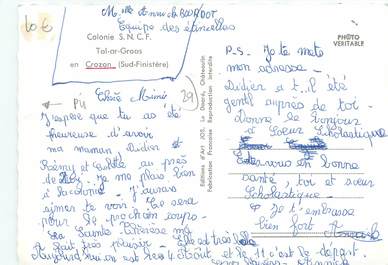 Mlle Annick
Equipe des
Colonie S.N.C.F.
Tal-ar-Groas
en Crozon (Sud-Finistère)
PHOTO
VERITABLE
29
Chère Mimie
J'espère que tu as été
heureuse d'avoir
ma maman, Didier
Rémy et au près
de toi. Je me plais bien
à la colonie. J'aurais
aimer te voir. Ce sera
pour le prochain coup.
La Sainte Thérèse m'a
fait très plaisir. Elle est très belle
Aujourd'hui on est le 8 Août et le 11 c'est le départ.
Editions d'Art JOS, Le Doaré, Châteaulin
Fabrication Française Reproduction Interdite
P.S. Je te mets
mon adresse.
Didier a t-il été
gentil auprès de toi.
Donne le bonjour
à Soeur Scholastique
Etes vous en bonne
santé, toi et soeur
Scholastique.
Je t'embrasse
bien fort